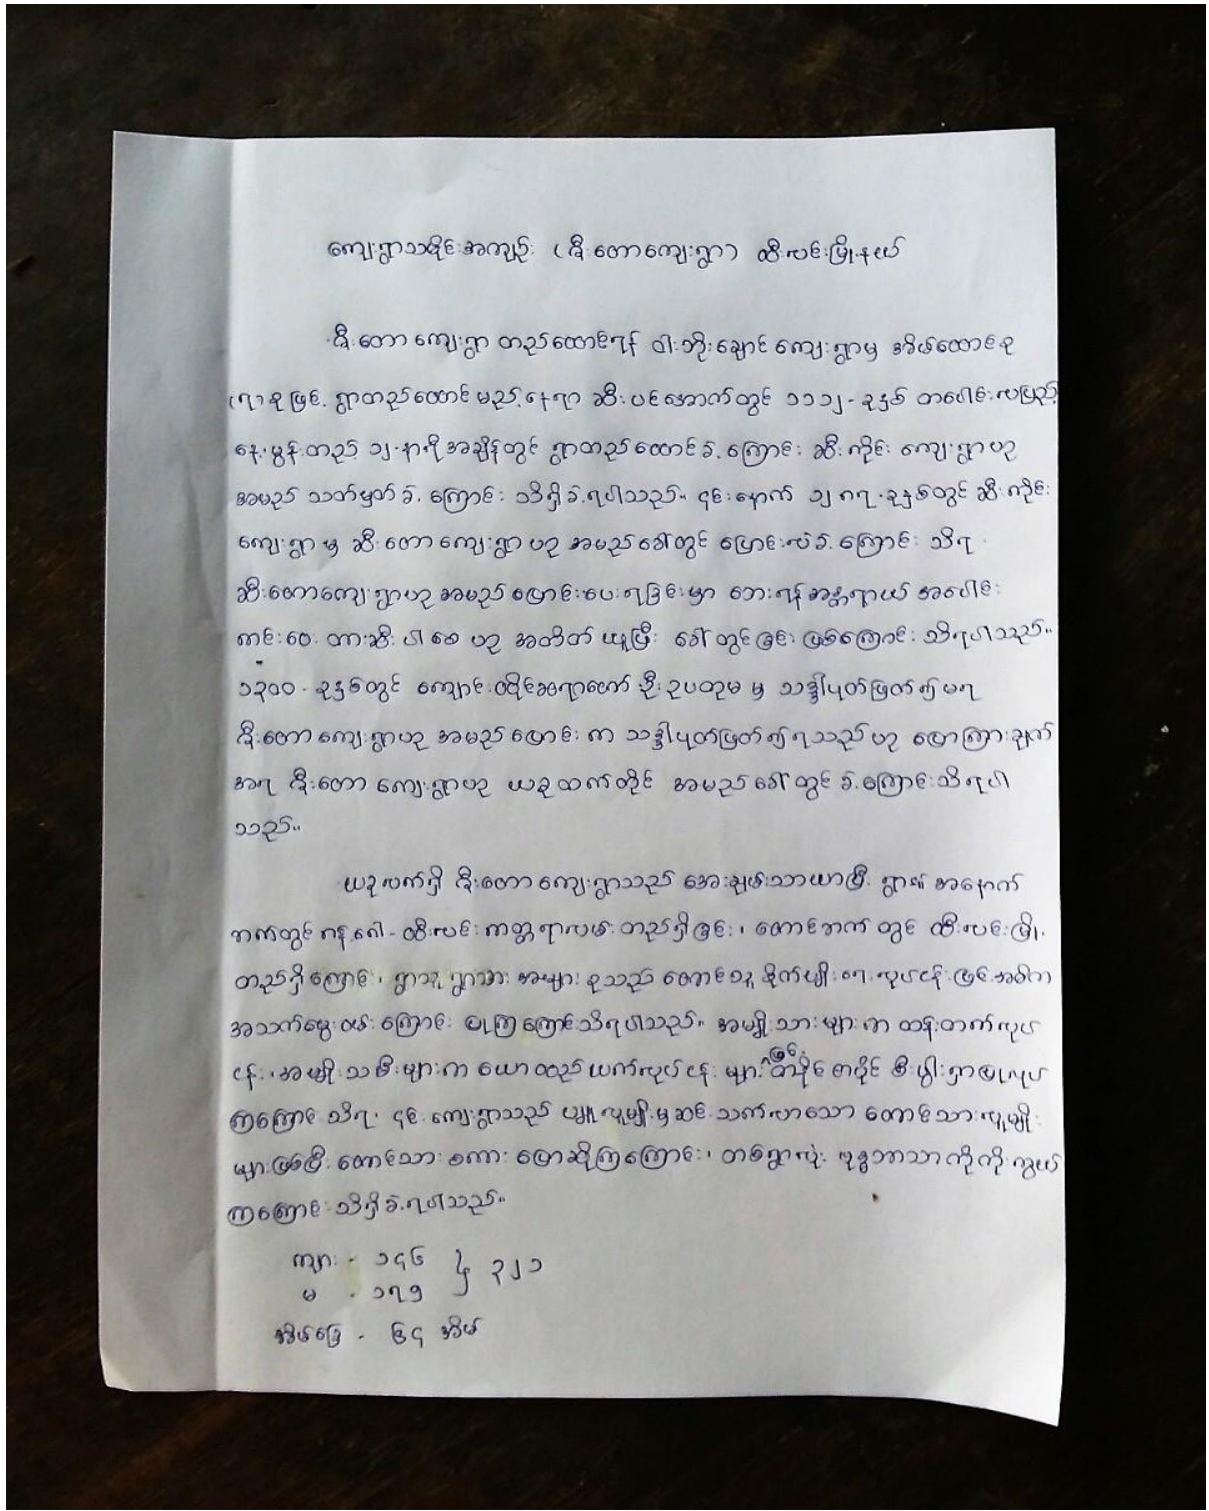 ကျေးရွာသမိုင်းအကျဉ်း (ဇီးတောကျေးရွာ) ထီးလင်းမြို့နယ်
ဇီးတောကျေးရွာ တည်ထောင်ရန် ဝါးဘိုးချောင် ကျေးရွာမှ အိမ်ထောင်စု
(၇) စုဖြင့် ရွာတည်ထောင်မည့်နေရာ ဆီးပင်အောက်တွင် ၁၁၁၂-ခုနှစ် တပေါင်းလပြည့်
နေ့၊ မွန်းတည့် ၁၂-နာရီအချိန်တွင် ရွာတည်ထောင်ခဲ့ကြောင်း ဆီးကိုင်း ကျေးရွာဟု
အမည် သတ်မှတ်ခဲ့ကြောင်း သိရှိခဲ့ရပါသည်။ ၎င်းနောက် ၁၂၈၇-ခုနှစ်တွင် ဆီးကိုင်း
ကျေးရွာမှ ဆီးတောကျေးရွာဟု အမည်ခေါ်တွင် ပြောင်းလဲခဲ့ကြောင်း သိရ
ဆီးတောကျေးရွာဟု အမည်ပြောင်းပေးရခြင်းမှာ ဘေးရန်အန္တရာယ် အပေါင်း
ကင်းဝေး တားဆီးပါစေ ဟု အတိတ်ယူပြီး ခေါ်တွင်ခြင်း ဖြစ်ကြောင်း သိရပါသည်။
၁၃၀၀-ခုနှစ်တွင် ကျောင်းထိုင်ဆရာတော် ဦးဥပတုမ မှ သဒ္ဒါပုတ်ဖြတ်၍မရ
ဇီးတောကျေးရွာဟု အမည်ပြောင်းက သဒ္ဒါပုတ်ဖြတ်၍ရသည်ဟု ပြောကြားချက်
အရ ဇီးတောကျေးရွာဟု ယခုထက်တိုင် အမည်ခေါ်တွင်ခဲ့ကြောင်းသိရပါ
သည်။
ယခုလက်ရှိ ဇီးတောကျေးရွာသည် အေးချမ်းသာယာပြီး ရွာ၏ အနောက်
ဘက်တွင် ဂန့်ဂေါ-ထီးလင်းကတ္တရာလမ်း တည်ရှိခြင်း၊ တောင်ဘက်တွင် ထီးလင်းမြို့
တည်ရှိကြောင်း၊ ရွာသူ ရွာသား အများစုသည် တောင်သူစိုက်ပျိုးရေးလုပ်ငန်းဖြင့်အဓိက
အသက်မွေးဝမ်းကြောင်း ပြုကြကြောင်းသိရပါသည်။ အမျိုးသားများက ထန်းတက်လုပ်
ငန်း၊ အမျိုးသမီးများက ယောထည်ယက်လုပ်ငန်းများဖြင့် တစ်နိုင်တစ်ပိုင် စီးပွါးရှာပြုလုပ်
ကြကြောင်းသိရ၊ ၎င်းကျေးရွာသည် ပျူလူမျိုးမှဆင်းသက်လာသော တောင်သားလူမျိုး
များဖြစ်ပြီး တောင်သားစကားပြောဆိုကြကြောင်း၊ တစ်ရွာလုံး ဗုဒ္ဓဘာသာကိုကိုးကွယ်
ကြကြောင်းသိရှိခဲ့ရပါသည်။
ကျား - ၁၄၆
} ၃၂၁
မ - ၁၇၅
အိမ်ခြေ - ၆၄ အိမ်